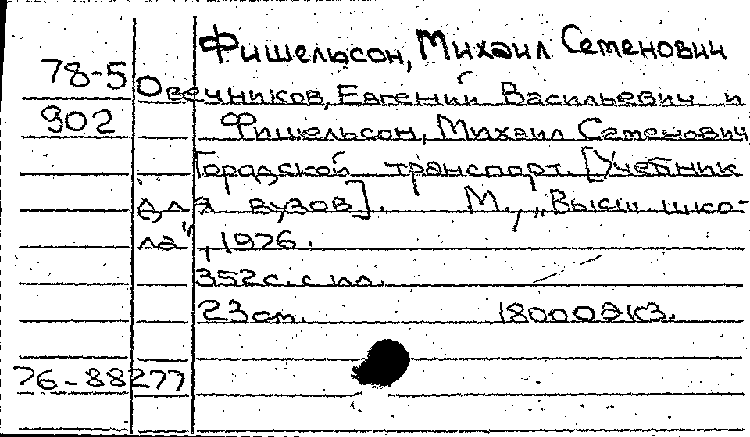 Фишельсон, Михаил Семенович
78-5 Овечников, Евгений Васильевич и
902 Фишельсон, Михаил Семенович
Городской транспорт. [Учебник
для вузов]. М., „Высш. шко-
ла", 1976.
352с. с ил.
23см. 18000экз.
76-88277